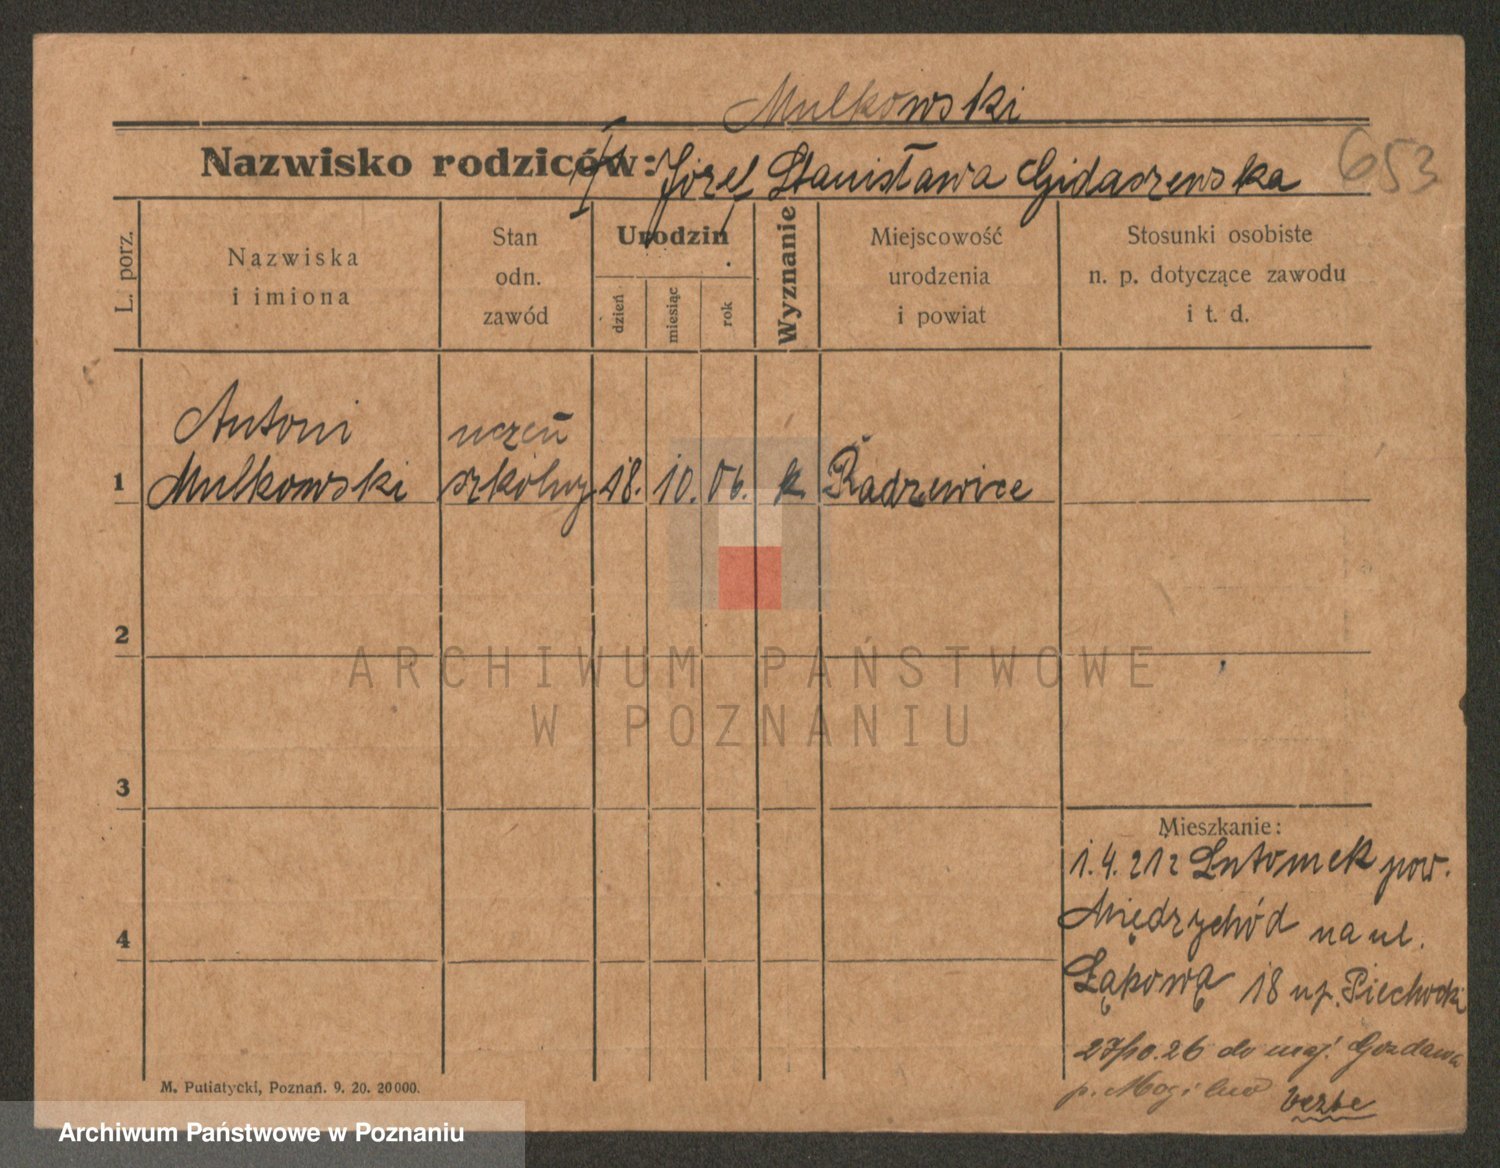 Mulkowski
Nazwisko rodziców: Józef Stanisława Gidaszewska
653
L. porz.
Nazwiska
i imiona
Stan
odn.
zawód
Urodzin
dzień
miesiąc
rok
Wyznanie
Miejscowość
urodzenia
i powiat
Stosunki osobiste
n. p. dotyczące zawodu
i t. d.
Antoni uczeń
1 Mulkowski szkolny 18. 10. 06. k Radzewice
2
ARCHIWUM PAŃSTWOWE
W POZNANIU
3
Mieszkanie:
1.4.21 z Lutomek pow.
Międzychód na ul.
4
Łąkową 18 up. Piechocki
27/10.26 do maj. Gozdawa
p. Mogilno
M. Putiatycki, Poznań. 9. 20. 20000.
Archiwum Państwowe w Poznaniu